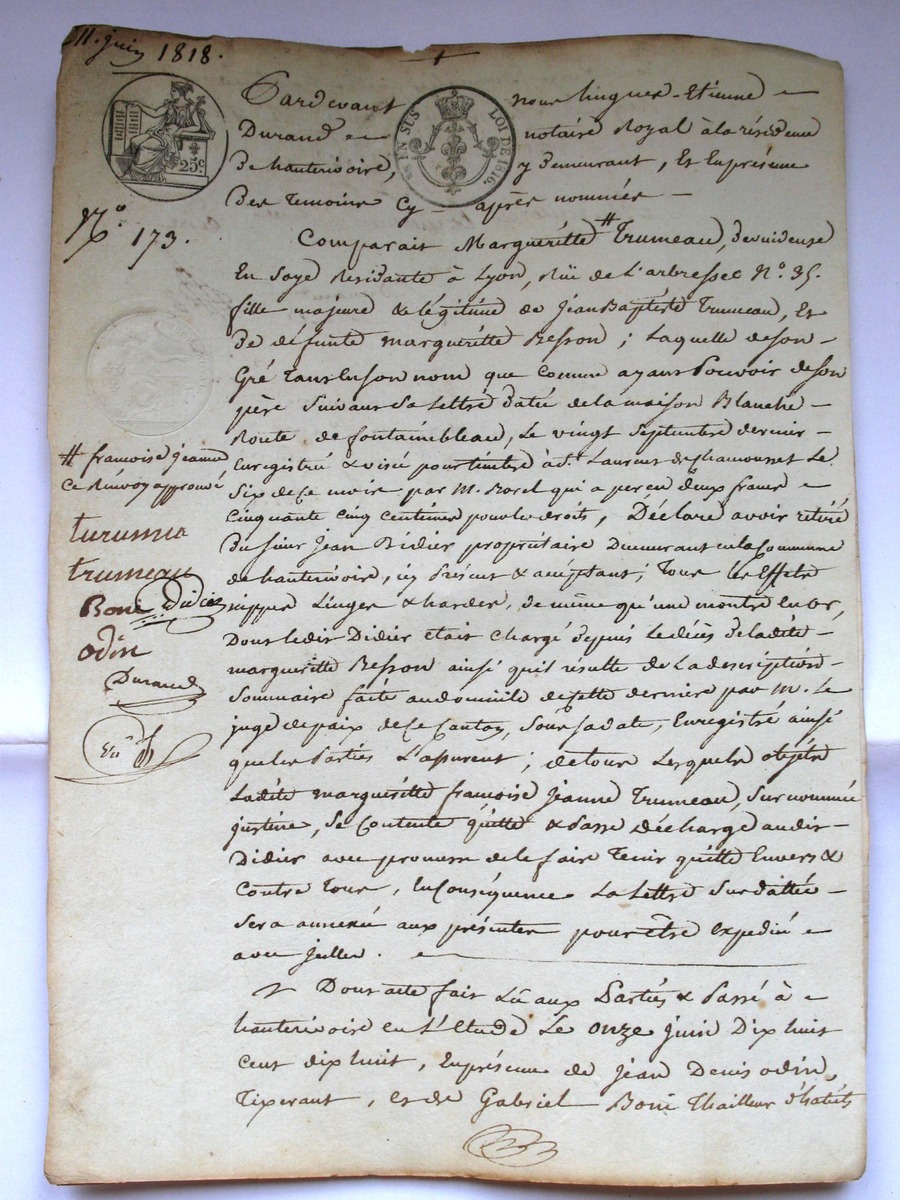 11. juin 1818.
Pardevant nous hugues-Etienne
Durand notaire Royal à la résidence
De hauterivoire, y Demeurant, Et En présence
Des Temoins Cy-après nommés
25c
EN SUS LOI DE 1816.
N.° 173.
Comparait Marguéritte # Trumeau, Devuideuse
En Soye Résidante à Lyon, Rüe de L'arbressec N.° 35.
fille majeure & légitime de Jean Baptiste Trumeau, Et
De défunte marguéritte Besson ; Laquelle de son
Gré Tant En son nom que Comme ayant Pouvoir de son
père Suivant Sa Lettre datée de la maison Blanche
Route de fontainebleau, Le vingt Septembre dernier
Enregistré & visé pour timbre à d.t Laurent de Chamousset Le
Six de Ce mois par M. Borel qui a perçu deux francs
Cinquante Cinq Centimes pour les droits, Déclare avoir retiré
Du Sieur Jean Didier propriétaire Demeurant en la Commune
de hauterivoire, icy Présent & acceptant ; Tous les Effets
nippes Linges & hardes, de même qu'une montre En or,
Dont Ledit Didier était Chargé depuis Le décès de ladite
marguéritte Besson ainsi qu'il résulte de La description
Sommaire faite au domicile de Cette dernière par M. Le
juge de paix de Ce Canton, Sous sa date, Enregistré ainsi
que les Parties L'assurent ; de tous Lesquels objets
Ladite marguéritte françoise jeanne Trumeau, Surnommée
justine, Se Contente quitte & Passe Décharge audit
Didier avec promesse de le faire Tenir quitte Envers &
Contre Tous, En Conséquence La Lettre Sus dattée
Sera annexée aux présentes pour être Expédiée
avec jcelles.
Dont acte fait Lû aux Parties & Passé à
hauterivoire en L'Etude Le onze juin Dix huit
Cent dix huit, En présence de Jean Denis odin,
Tixerant, et de Gabriel Boni Thailleur d'habits
# françoise jeanne
Ce Renvoy approuvé
trumeau
Boni Didier
odin
Durand